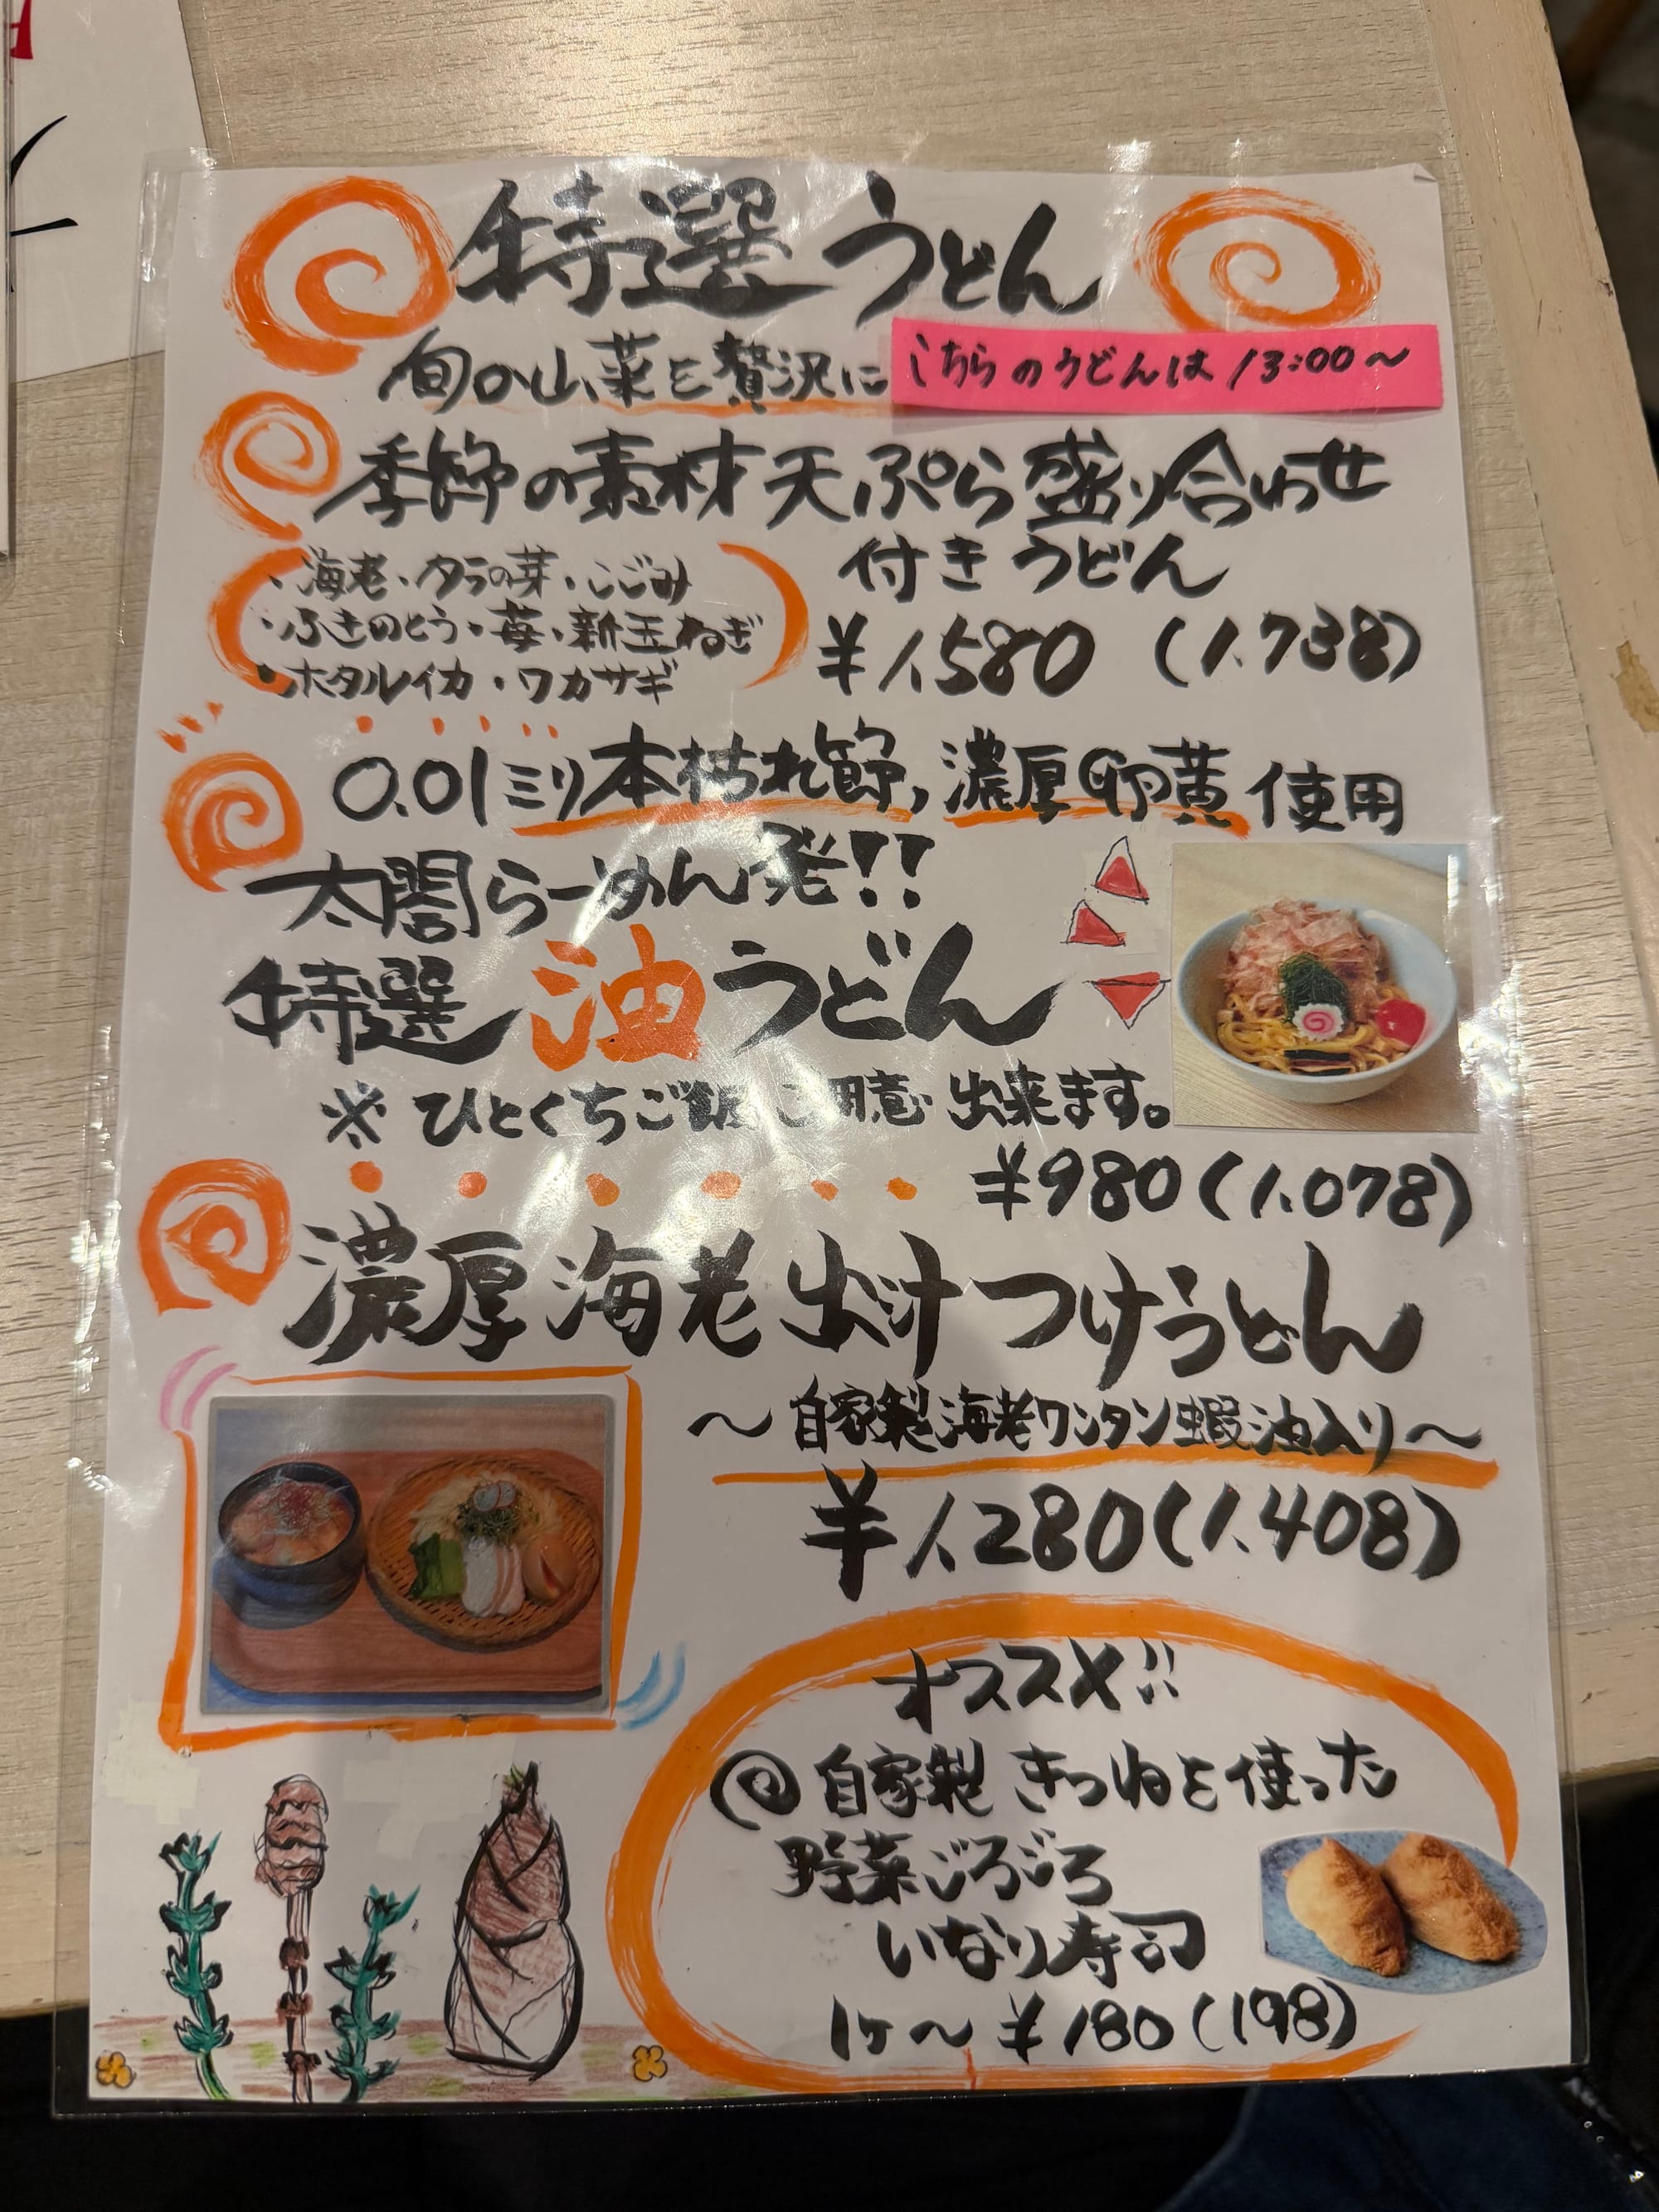 特選うどん
旬の山菜を贅沢に
こちらのうどんは13:00～
季節の素材天ぷら盛り合わせ
付きうどん
・海老・タラの芽・こごみ
・ふきのとう・苺・新玉ねぎ
・ホタルイカ・ワカサギ
¥1,580 (1,738)
0.01ミリ本枯れ節,濃厚卵黄使用
太閤らーめん発!!
特選油うどん
※ひとくちご飯ご用意出来ます。
¥980(1,078)
濃厚海老出汁つけうどん
～自家製海老ワンタン蝦油入り～
¥1,280(1,408)
オススメ!!
自家製きつねを使った
野菜ごろごろ
いなり寿司
1ヶ～¥180(198)